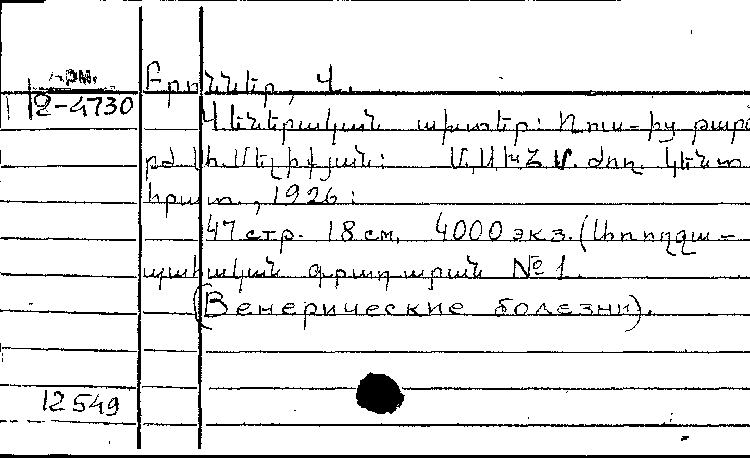 Арм.
2-4730
Բրոններ, Վ.
Վեներական ախտեր: Ռուս-ից թարգ
բժ. Մելիքյան: Մ, ժող. կենտ
հրատ., 1926:
47 стр. 18 см. 4000 экз. (Առողջա-
պահական գրադարան № 1.
(Венерические болезни).
12549